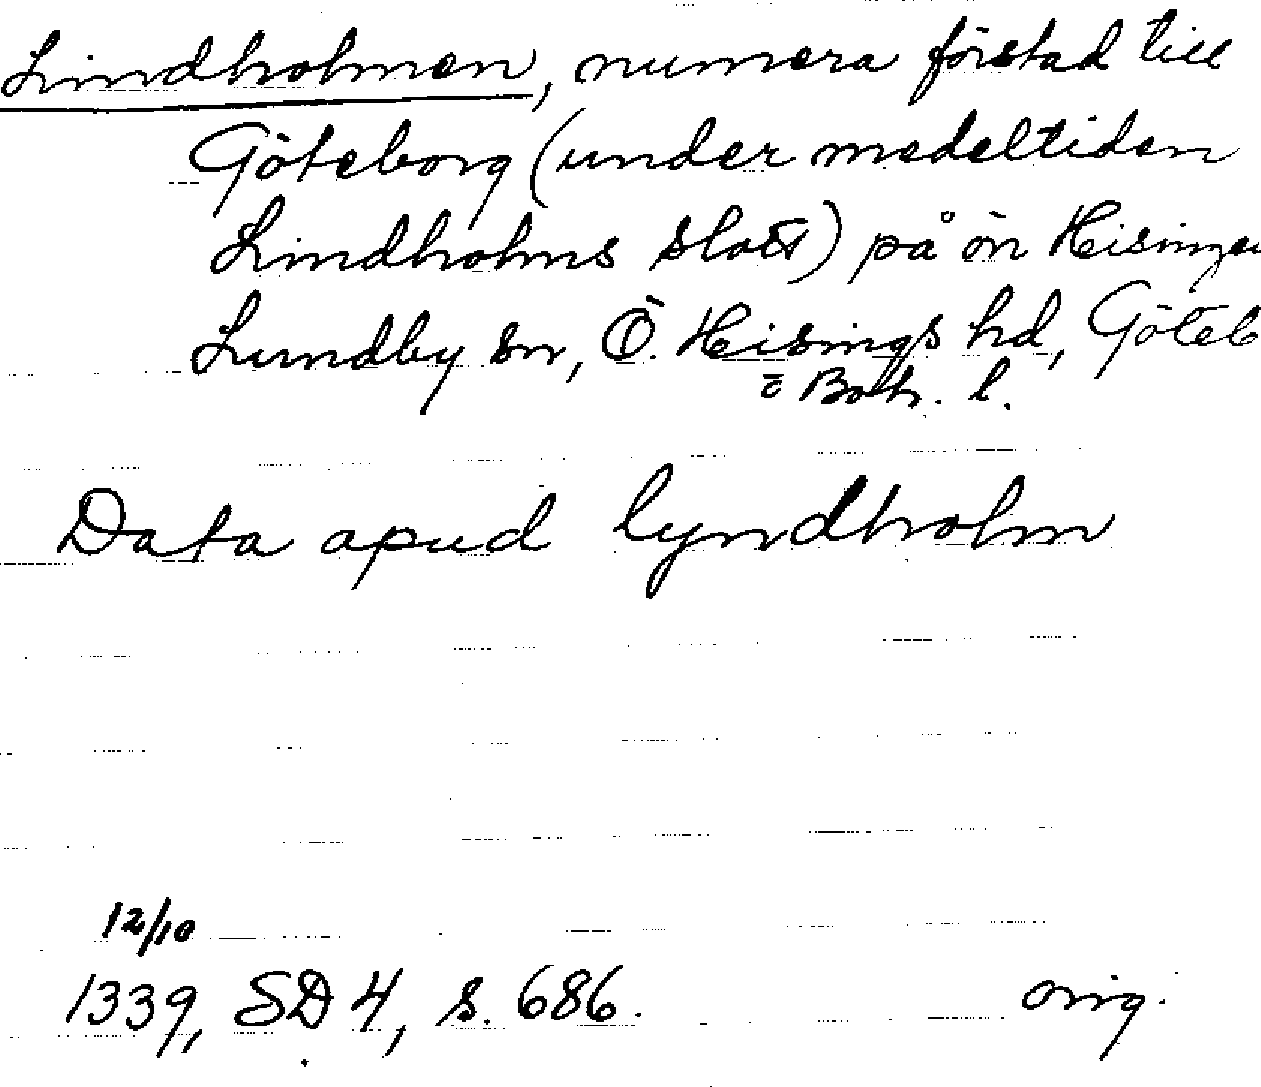 Lindholmen, numera förstad till
Göteborg (under medeltiden
Lindholms slott) på ön Hisingen
Lundby sn, Ö. Hisings hd, Göteb
o Boh. l.
Data apud lyndholm
12/10
1339, SD 4, s. 686. orig.